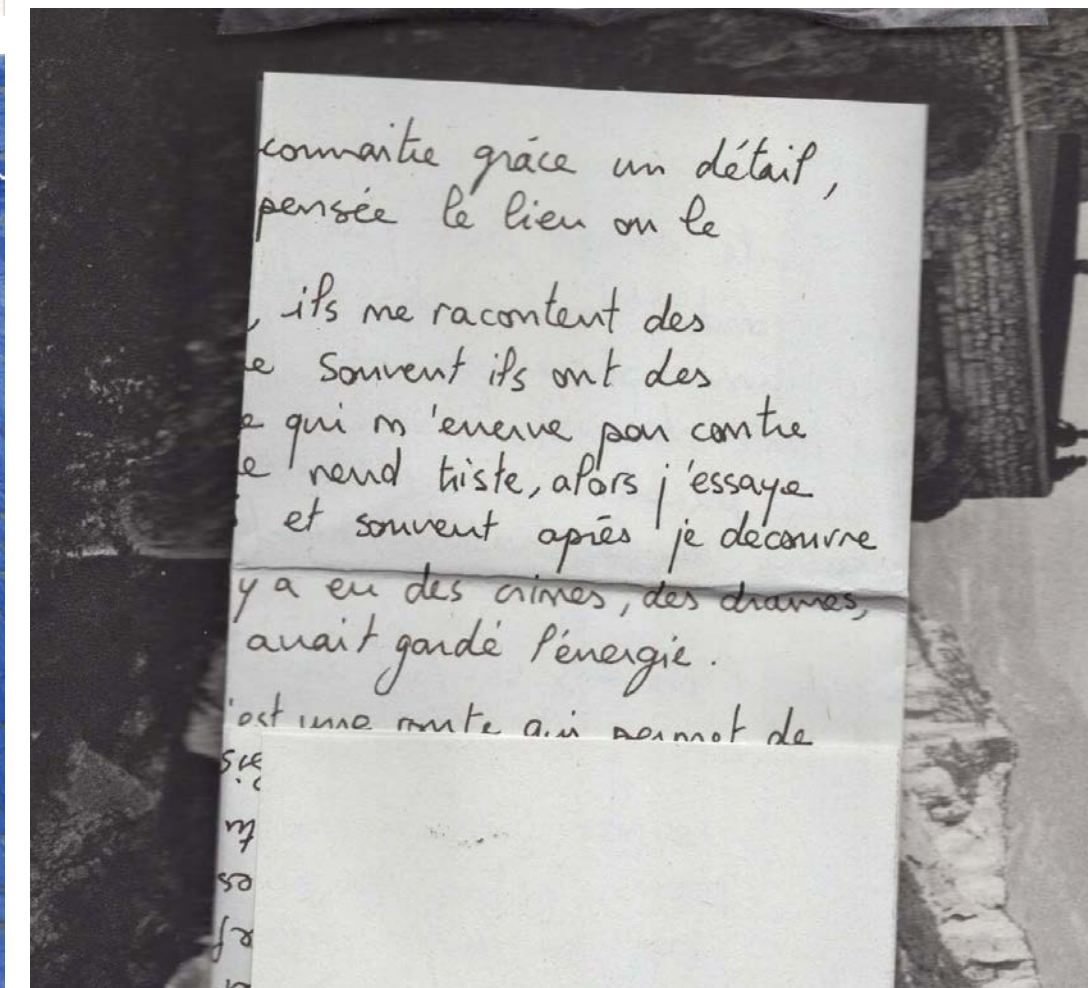 connaitre grâce un détail,
pensée le lieu ou le
, ils me racontent des
e Souvent ils ont des
e qui m'énerve par contre
e rend triste, alors j'essaye
et souvent après je découvre
y a eu des crimes, des drames,
avait gardé l'énergie.
'est une route qui permet de